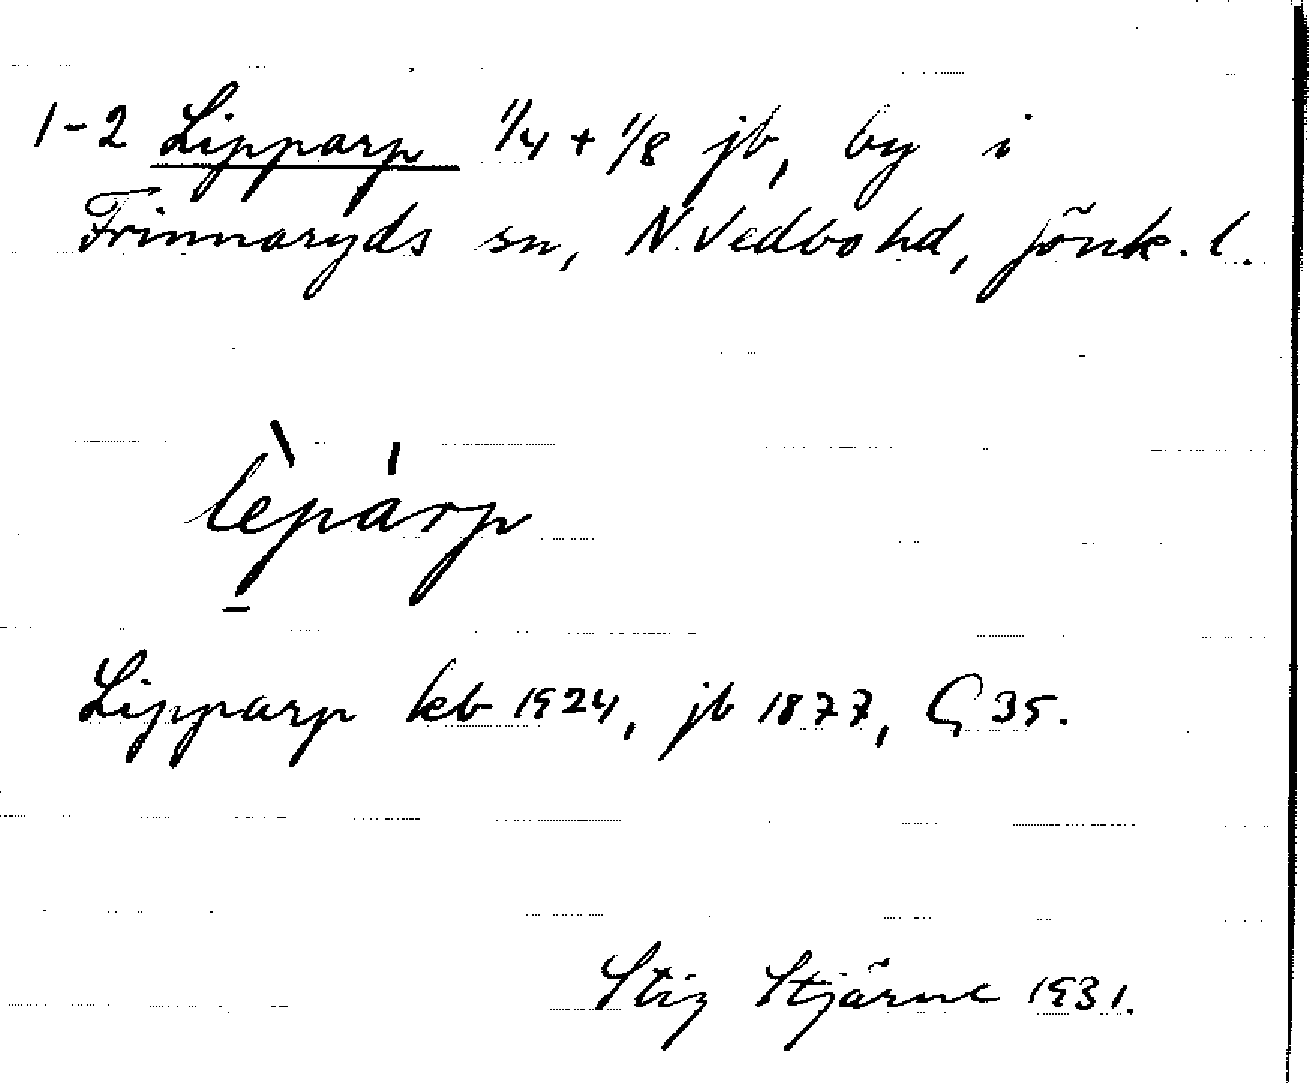 1-2 Lipparp 1/4 + 1/8 jb, by i
Frinnaryds sn, N. Vedbo hd, Jönk. l.
lèp̱árp
Lipparp kb 1924, jb 1877, G 35.
Stig Stjärne 1931.